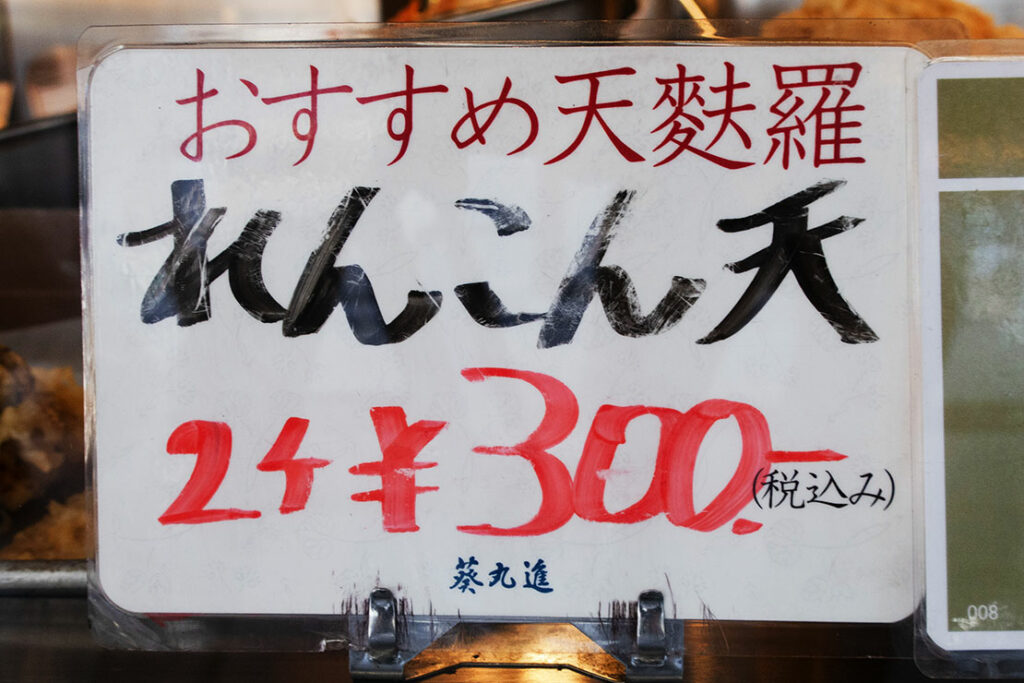 おすすめ天麩羅
れんこん天
2ケ¥300.-
(税込み)
葵丸進
008